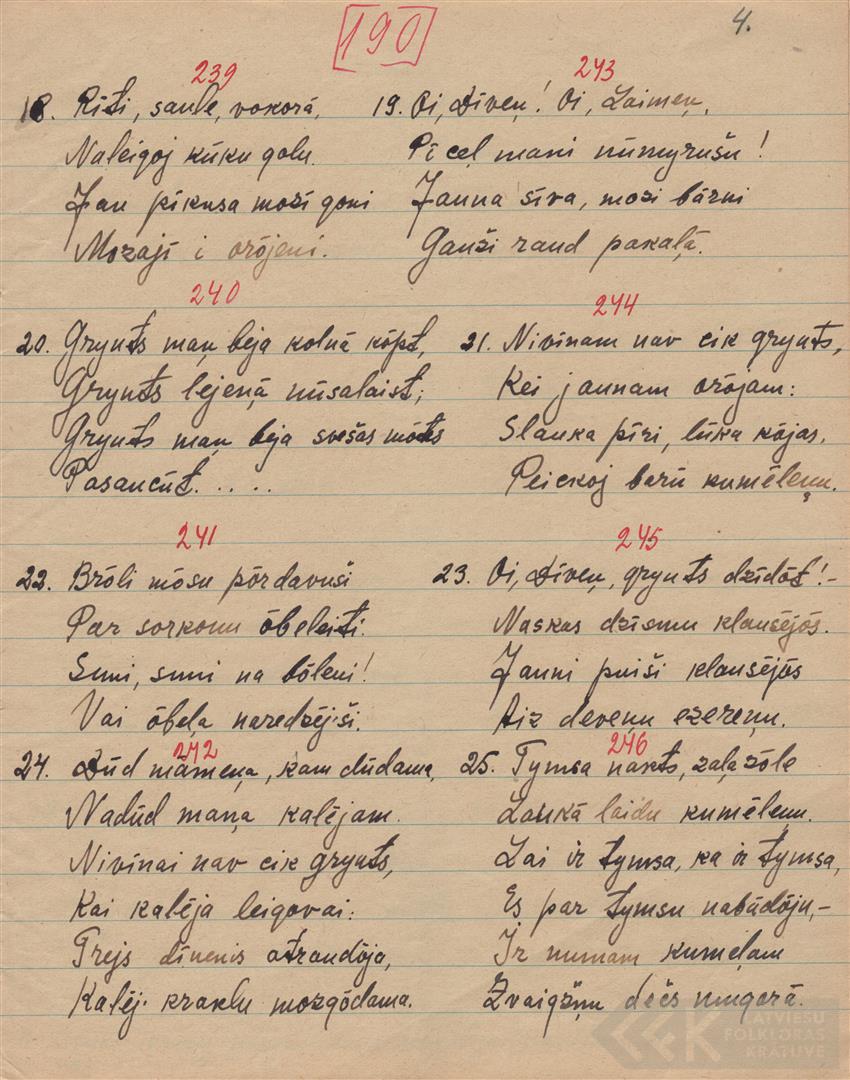 4.
190
239
18. Rīti, saule, vokorā,
Naleigoj kūku golu.
Jau pīkusa mozī goni
Mozajī i orōjeni.
243
19. Oi, Dīveņ! Oi, Laimeņ,
Pī ceļ mani nūmyrušu!
Jauna sīva, mozi bārni
Gauži raud pakaļā.
240
20. Gryuts maņ beja kolnā kōpt,
Gryuts lejeņā nūsalaist;
Gryuts maņ beja svešas mōtis
Pasaucūt. . . .
244
21. Nivīnam nav cik gryuts,
Kei jaunam orōjam:
Slauka pīri, lūka kōjas,
Peickoj barū kumēleņu.
241
22. Brōli mōsu pōrdavuši
Par sorkonu ōbeleiti.
Suni, suni na bōleni!
Vai ōbeļa naredzējši.
245
23. Oi, Dīveņ, gryuts dzīdōt! –
Naskas dzīsmu klausējōs.
Jauni puiši klausējōs
Aiz deveņu ezereņu.
242
24. Dūd māmeņa, kam dūdama,
Nadūd maņa kalējam.
Nivīnai nav cik gryuts,
Kai kalēja leigovai:
Trejs dīnenis atraudōja,
Kalēj. kraklu mozgōdama.
246
25. Tymsa nakts, zaļa zōle
Laukā laidu kumēleņu.
Lai ir tymsa, ka ir tymsa,
Es par tymsu nabādōju, –
Ir munam kumeļam
Zvaigžņu dečs mugorā.
LATVIEŠU
FOLKLORAS
KRĀTUVE